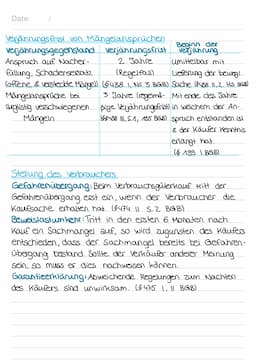 Date: /
Verjährungsfrist von Mängelansprüchen
Verjährungsgegenstand Verjährungsfrist Beginn der Verjährung
Anspruch auf Nacher- 2 Jahre unmittelbar mit
füllung, Schadensersatz (Regelfall) Lieferung der bewegl.
(offene & versteckte Mängel) (§438 1, Nr. 3 BGB) Sache (§438 II, 2. Hs BGB)
Mängelansprüche bei 3 Jahre (regelmä- Mit Ende des Jahres
arglistig verschwiegenen ßige Verjährungsfrist) in welchem der An-
Mängeln S.1, 195 BGB) spruch entstanden ist
& der Käufer Kenntnis
erlangt hat.
(§ 199 1 BGB)
Stellung des Verbrauchers
Gefahrenübergang: Beim Verbrauchsgüterkauf tritt der
Gefahrenübergang erst ein, wenn der Verbraucher die
Kaufsache erhalten hat. (§474 II S. 2 BGB)
Beweislastumkehr: Tritt in den ersten 6 Monaten nach
Kauf ein Sachmangel auf, so wird zugunsten des Käufers
entschieden, dass der Sachmangel bereits bei Gefahren-
übergang bestand. Sollte der Verkäufer anderer Meinung
sein, so muss er dies nachweisen können.
Garantieerklärung: Abweichende Regelungen zum Nachteil
des Käufers sind unwirksam. (§475 1, II BGB)